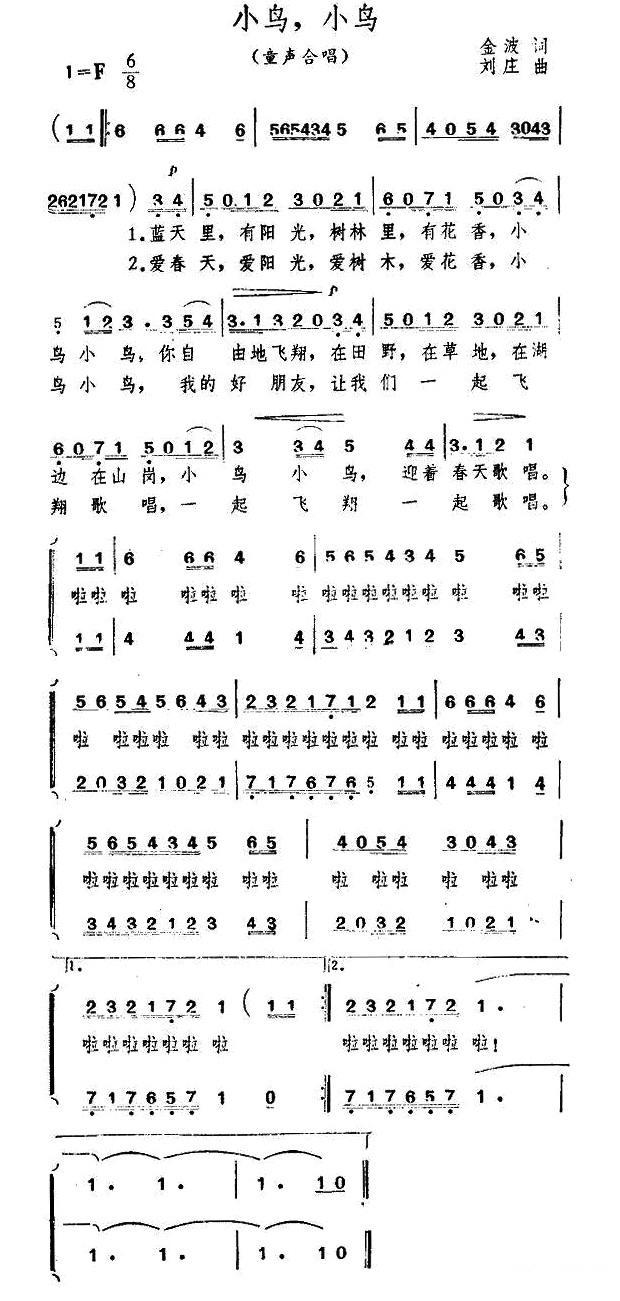 小鸟，小鸟
（童声合唱）
金波 词
1=F 6/8
刘庄 曲
(1 1 |: 6 6 6 4 6 | 5 6 5 4 3 4 5 6 5 | 4 0 5 4 3 0 4 3 |
2 6 2 1 7 2 1 ) p 3 4 | 5 0 1 2 3 0 2 1 | 6 0 7 1 5 0 3 4 |
1.蓝天里，有阳光，树林里，有花香，小
2.爱春天，爱阳光，爱树木，爱花香，小
5 1 2 3 . 3 5 4 | 3 . 1 3 2 0 3 4 | 5 0 1 2 3 0 2 1 |
p
鸟小鸟，你自由地飞翔，在田野，在草地，在湖
鸟小鸟，我的好朋友，让我们一起飞
6 0 7 1 5 0 1 2 | 3 3 4 5 4 4 | 3 . 1 2 1
边在山岗，小鸟小鸟，迎着春天歌唱。
翔歌唱，一起飞翔一起歌唱。
1 1 | 6 6 6 4 6 | 5 6 5 4 3 4 5 6 5
啦啦啦 啦啦啦 啦 啦啦啦啦啦啦啦 啦啦
1 1 | 4 4 4 1 4 | 3 4 3 2 1 2 3 4 3
5 6 5 4 5 6 4 3 | 2 3 2 1 7 1 2 1 1 | 6 6 6 4 6
啦 啦啦啦 啦啦 啦啦啦啦啦啦啦 啦啦 啦啦啦啦 啦
2 0 3 2 1 0 2 1 | 7 1 7 6 7 6 5 1 1 | 4 4 4 1 4
5 6 5 4 3 4 5 6 5 | 4 0 5 4 3 0 4 3 |
啦啦啦啦啦啦啦 啦啦 啦 啦啦 啦 啦啦
3 4 3 2 1 2 3 4 3 | 2 0 3 2 1 0 2 1
1. 2.
2 3 2 1 7 2 1 ( 1 1 :| 2 3 2 1 7 2 1 .
啦啦啦啦啦啦 啦 啦啦啦啦啦啦 啦！
7 1 7 6 5 7 1 0 :| 7 1 7 6 5 7 1 .
1 . 1 . | 1 . 1 0 ||
1 . 1 . | 1 . 1 0 ||